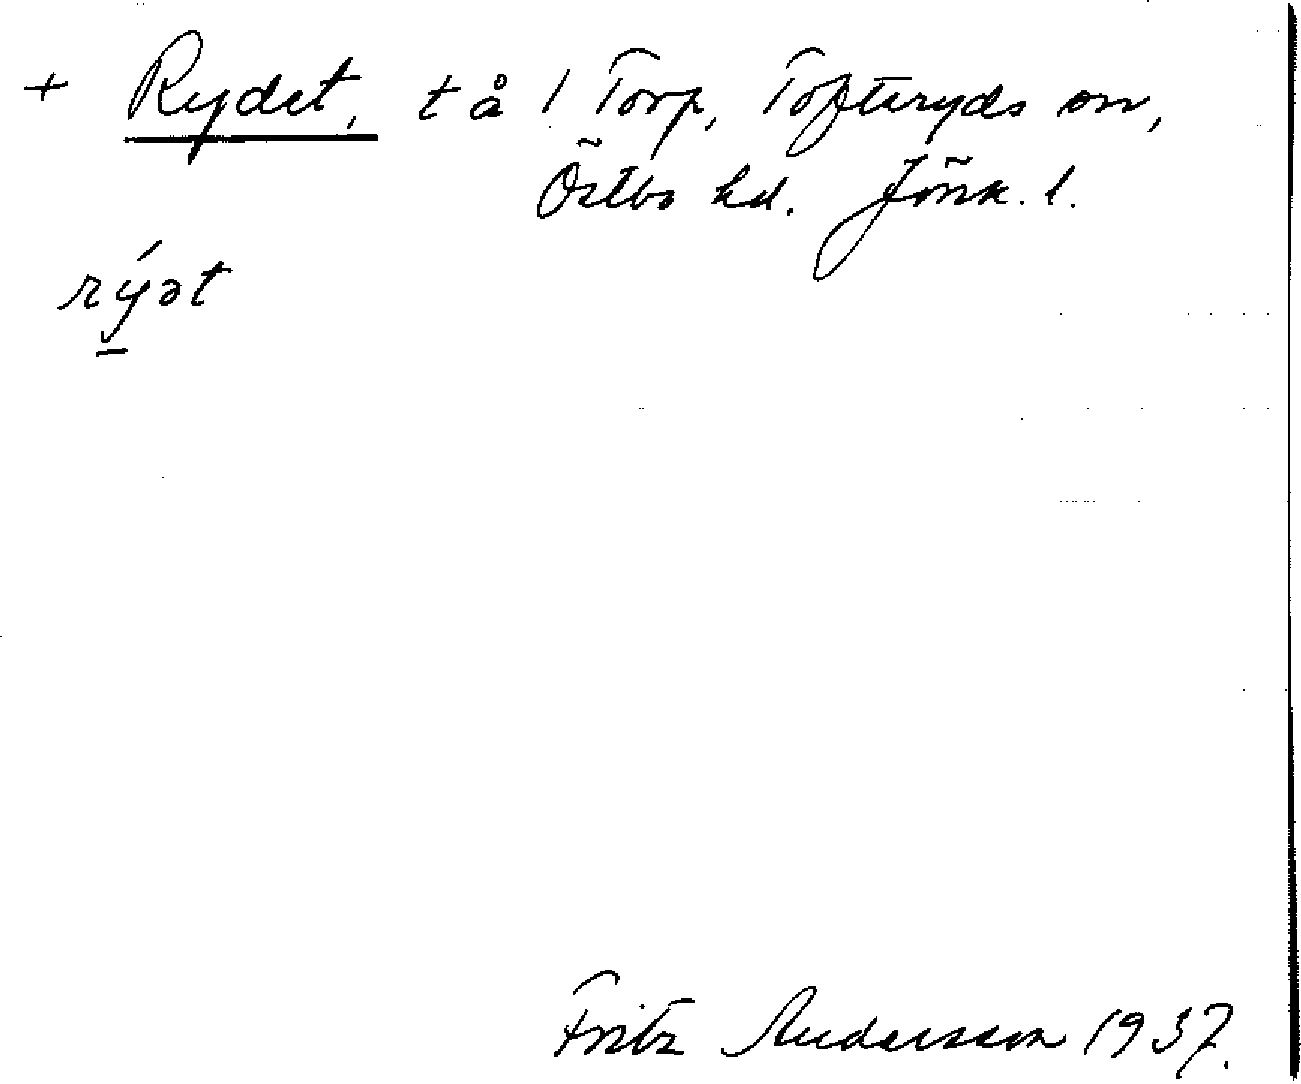 + Rydet, t å 1 Torp, Tofteryds sn,
Östbo hd. Jönk. l.
rýət
Fritz Andersson 1937.